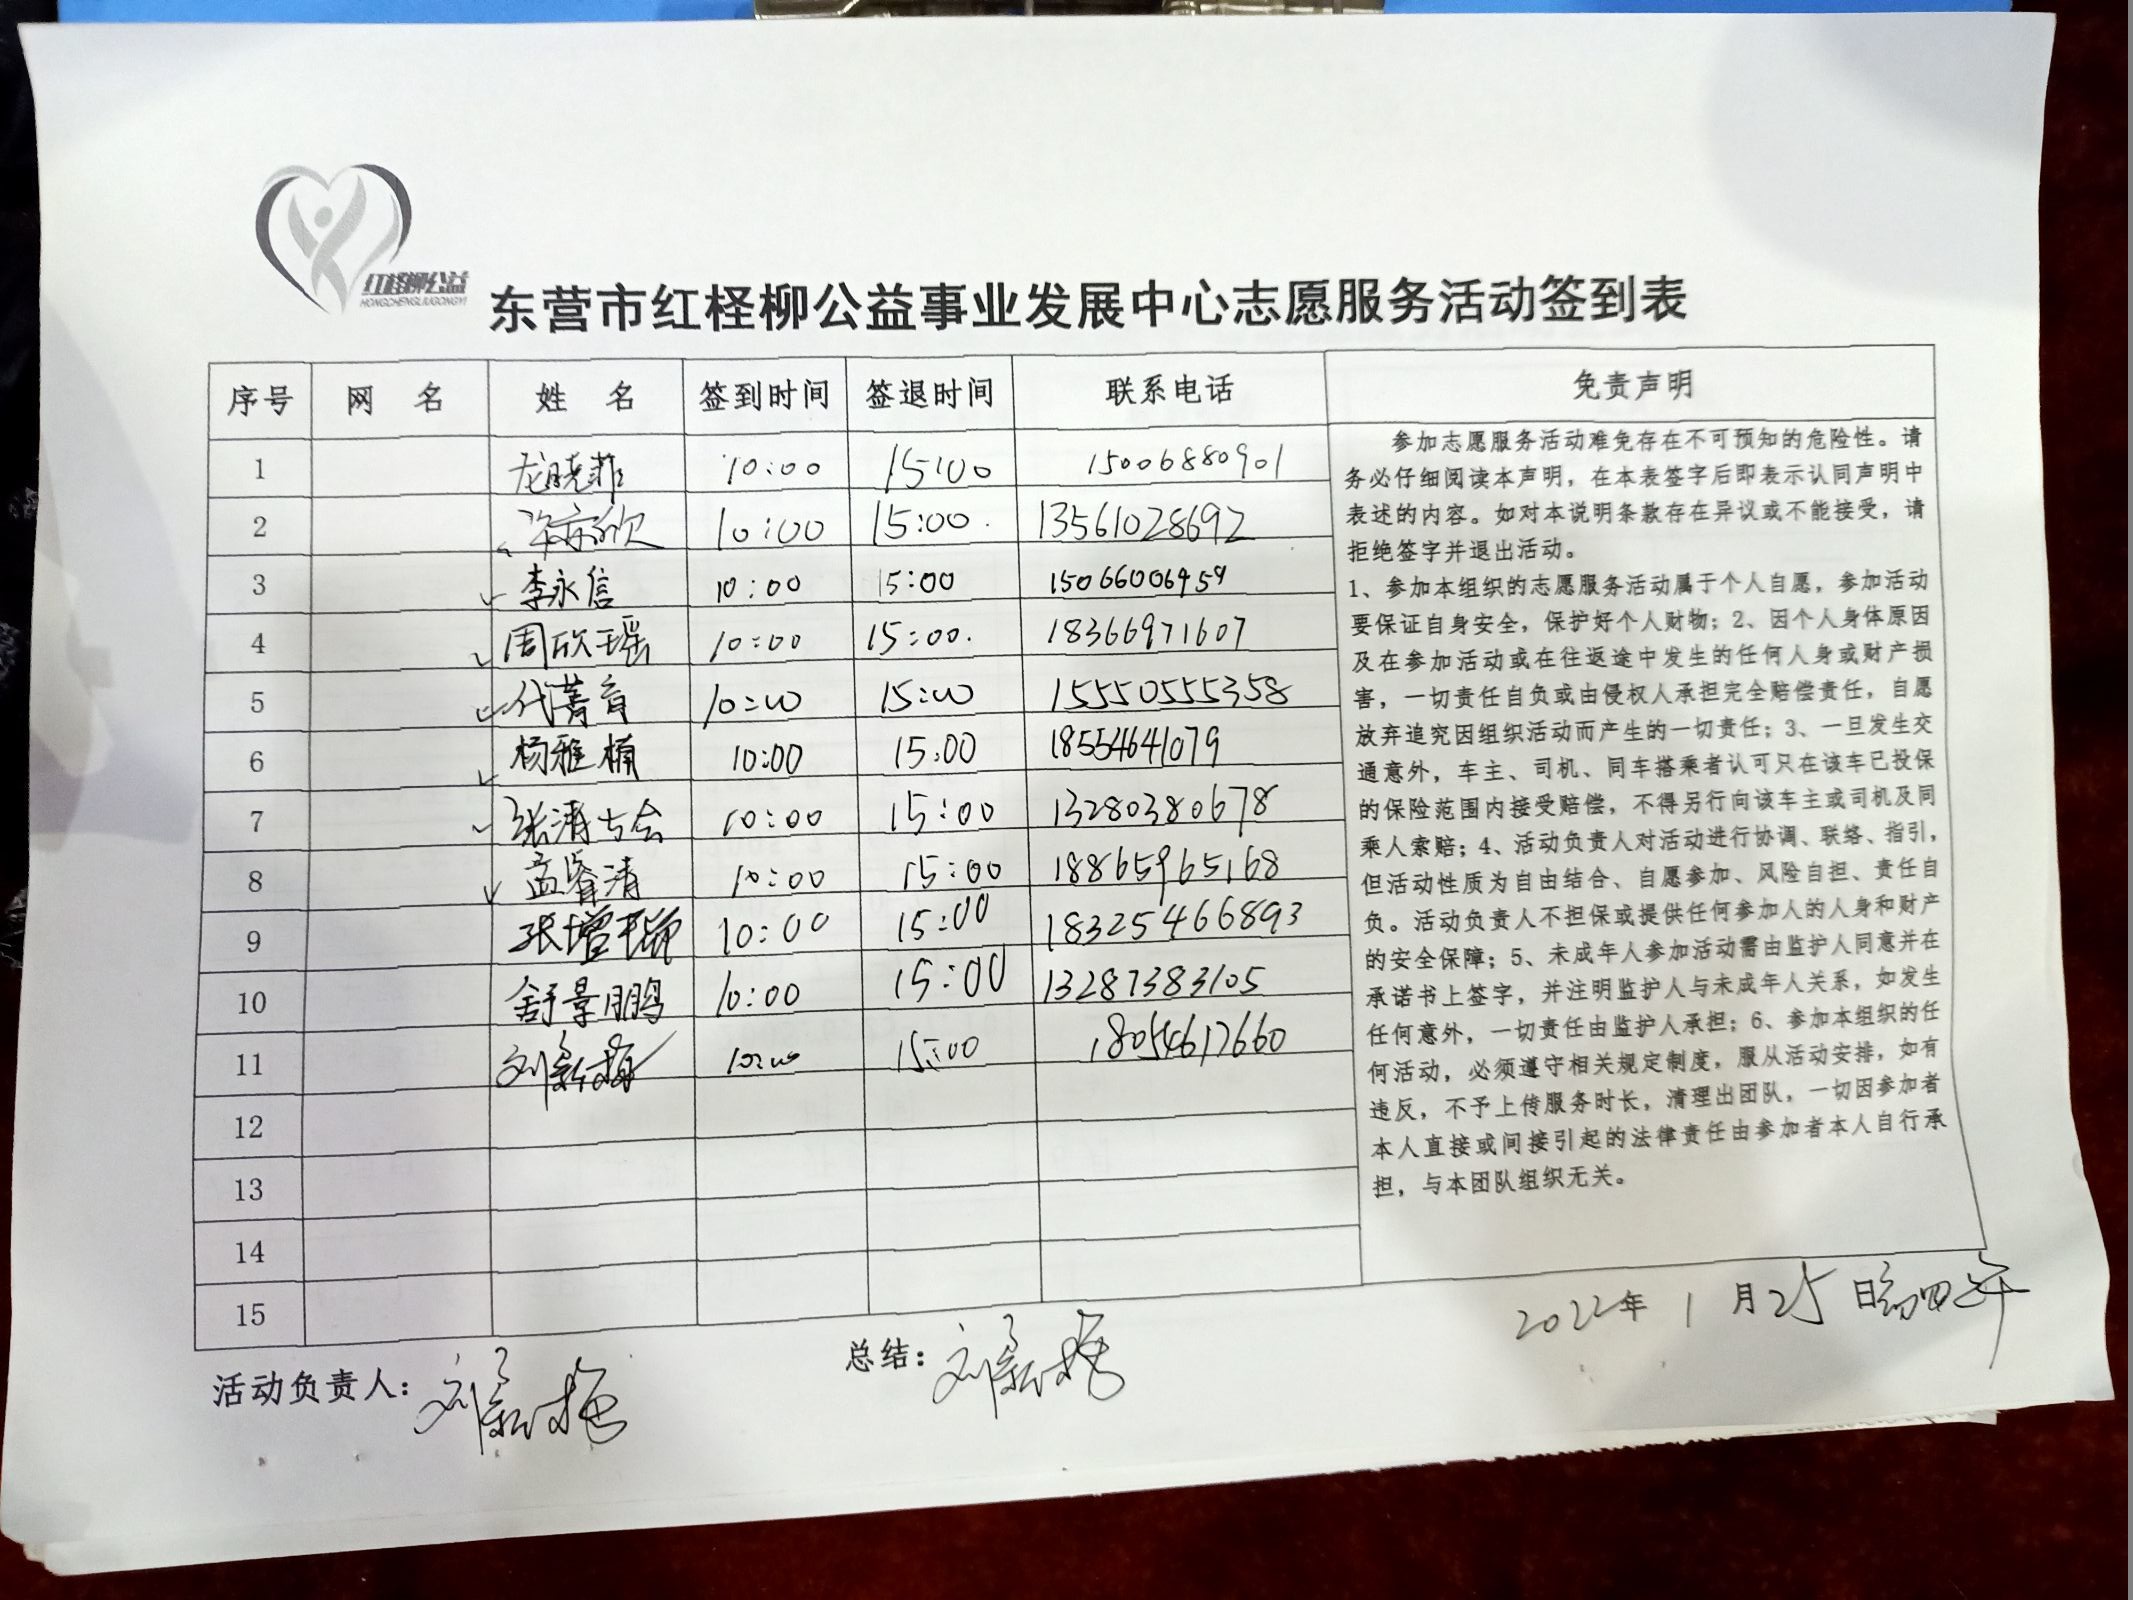 红柽柳公益
HONGCHENGLIUGONGYI
东营市红柽柳公益事业发展中心志愿服务活动签到表
序号 网 名 姓 名 签到时间 签退时间 联系电话 免责声明
1 龙晓菲 10:00 15:00 15006880901
2 10:00 15:00. 13561028692
3 李永信 10:00 15:00 15066006959
4 周欣瑶 10:00 15:00. 18366971607
5 代菁育 10:00 15:00 15550555358
6 杨雅楠 10:00 15:00 18554641079
7 10:00 15:00 13280380678
8 孟睿清 10:00 15:00 18865965168
9 10:00 15:00 18325466893
10 舒景鹏 10:00 15:00 13287383105
11 10:00 15:00 18054617660
12
13
14
15
参加志愿服务活动难免存在不可预知的危险性。请
务必仔细阅读本声明，在本表签字后即表示认同声明中
表述的内容。如对本说明条款存在异议或不能接受，请
拒绝签字并退出活动。
1、参加本组织的志愿服务活动属于个人自愿，参加活动
要保证自身安全，保护好个人财物；2、因个人身体原因
及在参加活动或在往返途中发生的任何人身或财产损
害，一切责任自负或由侵权人承担完全赔偿责任，自愿
放弃追究因组织活动而产生的一切责任；3、一旦发生交
通意外，车主、司机、同车搭乘者认可只在该车已投保
的保险范围内接受赔偿，不得另行向该车主或司机及同
乘人索赔；4、活动负责人对活动进行协调、联络、指引，
但活动性质为自由结合、自愿参加、风险自担、责任自
负。活动负责人不担保或提供任何参加人的人身和财产
的安全保障；5、未成年人参加活动需由监护人同意并在
承诺书上签字，并注明监护人与未成年人关系，如发生
任何意外，一切责任由监护人承担；6、参加本组织的任
何活动，必须遵守相关规定制度，服从活动安排，如有
违反，不予上传服务时长，清理出团队，一切因参加者
本人直接或间接引起的法律责任由参加者本人自行承
担，与本团队组织无关。
2022年 1 月25 日
活动负责人：
总结：